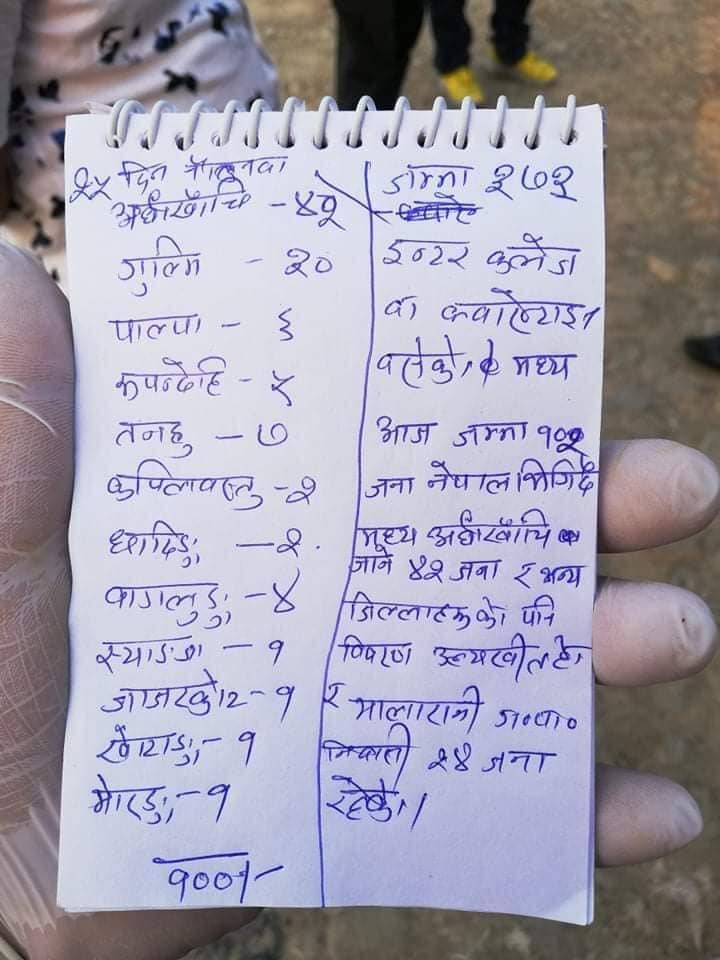 २५ दिन
अर्घाखाँचि - ४२
गुल्मि - २०
पाल्पा - ६
रूपन्देहि - ५
तनहु - ७
कपिलवस्तु - २
धादिङ्ग - २.
वागलुङ्ग - ४
स्याङजा - १
जाजरकोट - १
खोटाङ्ग - १
मोरङ्ग - १
१००/-
जम्मा २७२
इन्टर कलेज
वा क्वारेन्टाइन
वसेको, मध्य
आज जम्मा १०२
जना नेपाल भित्रिदै
मध्य अर्घाखाँचि
जाने ४२ जना र अन्य
जिल्लाहरूको पनि
विवरण उल्यखीत छ।
र मालारानी गा०पा०
निवासी २४ जना
रहेको।